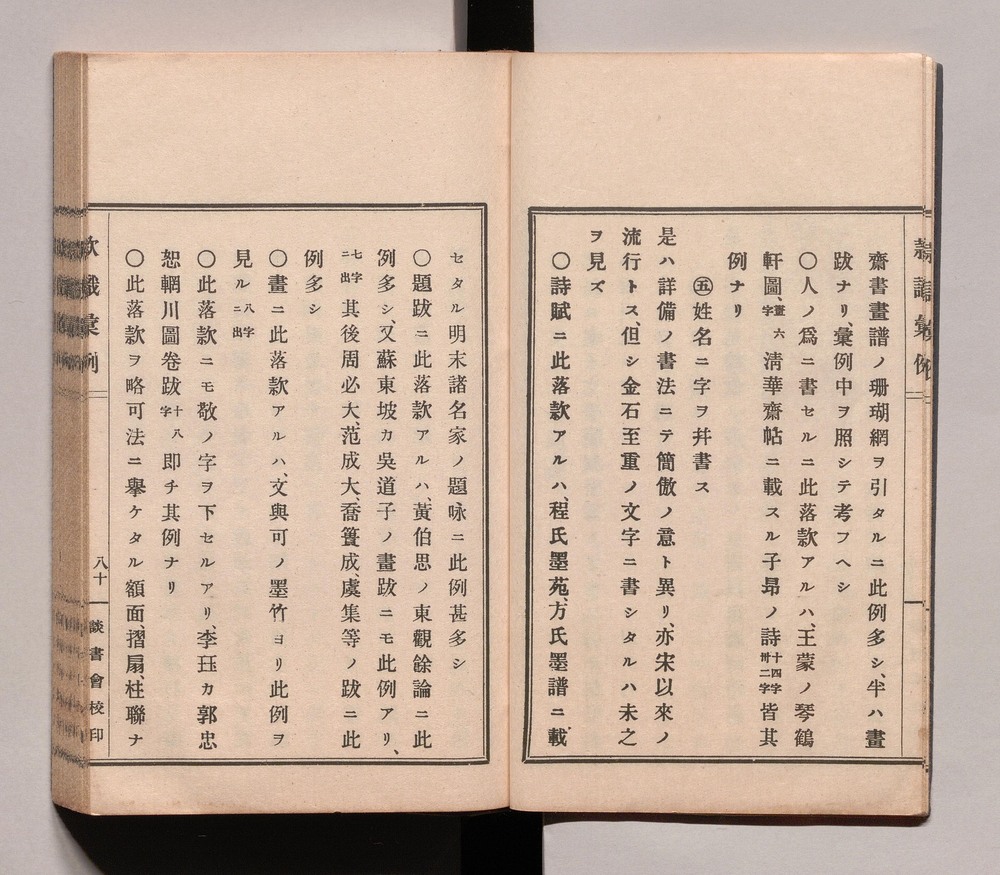 齋書畫譜ノ珊瑚網ヲ引タルニ此例多シ、半ハ畫
跋ナリ、彙例中ヲ照シテ考フヘシ
〇人ノ爲ニ書セルニ此落款アルハ、王蒙ノ琴鶴
軒圖、畫六字淸華齋帖ニ載スル子昻ノ詩十四字卅二字皆其
例ナリ
㊄姓名ニ字ヲ幷書ス
是ハ詳備ノ書法ニテ簡傲ノ意ト異リ、亦宋以來ノ
流行トス、但シ金石至重ノ文字ニ書シタルハ未之
ヲ見ズ
〇詩賦ニ此落款アルハ、程氏墨苑、方氏墨譜ニ載
セタル明末諸名家ノ題咏ニ此例甚多シ
〇題跋ニ此落款アルハ、黃伯思ノ東觀餘論ニ此
例多シ、又蘇東坡カ吳道子ノ畫跋ニモ此例アリ、
七字ニ出其後周必大、范成大、喬簣成、虞集等ノ跋ニ此
例多シ
〇畫ニ此落款アルハ、文與可ノ墨竹ヨリ此例ヲ
見ル八字ニ出
〇此落款ニモ敬ノ字ヲ下セルアリ、李珏カ郭忠
恕輞川圖卷跋十八字卽チ其例ナリ
〇此落款ヲ略可法ニ擧ケタル額面、摺扇、柱聯ナ
八十
談書會校印